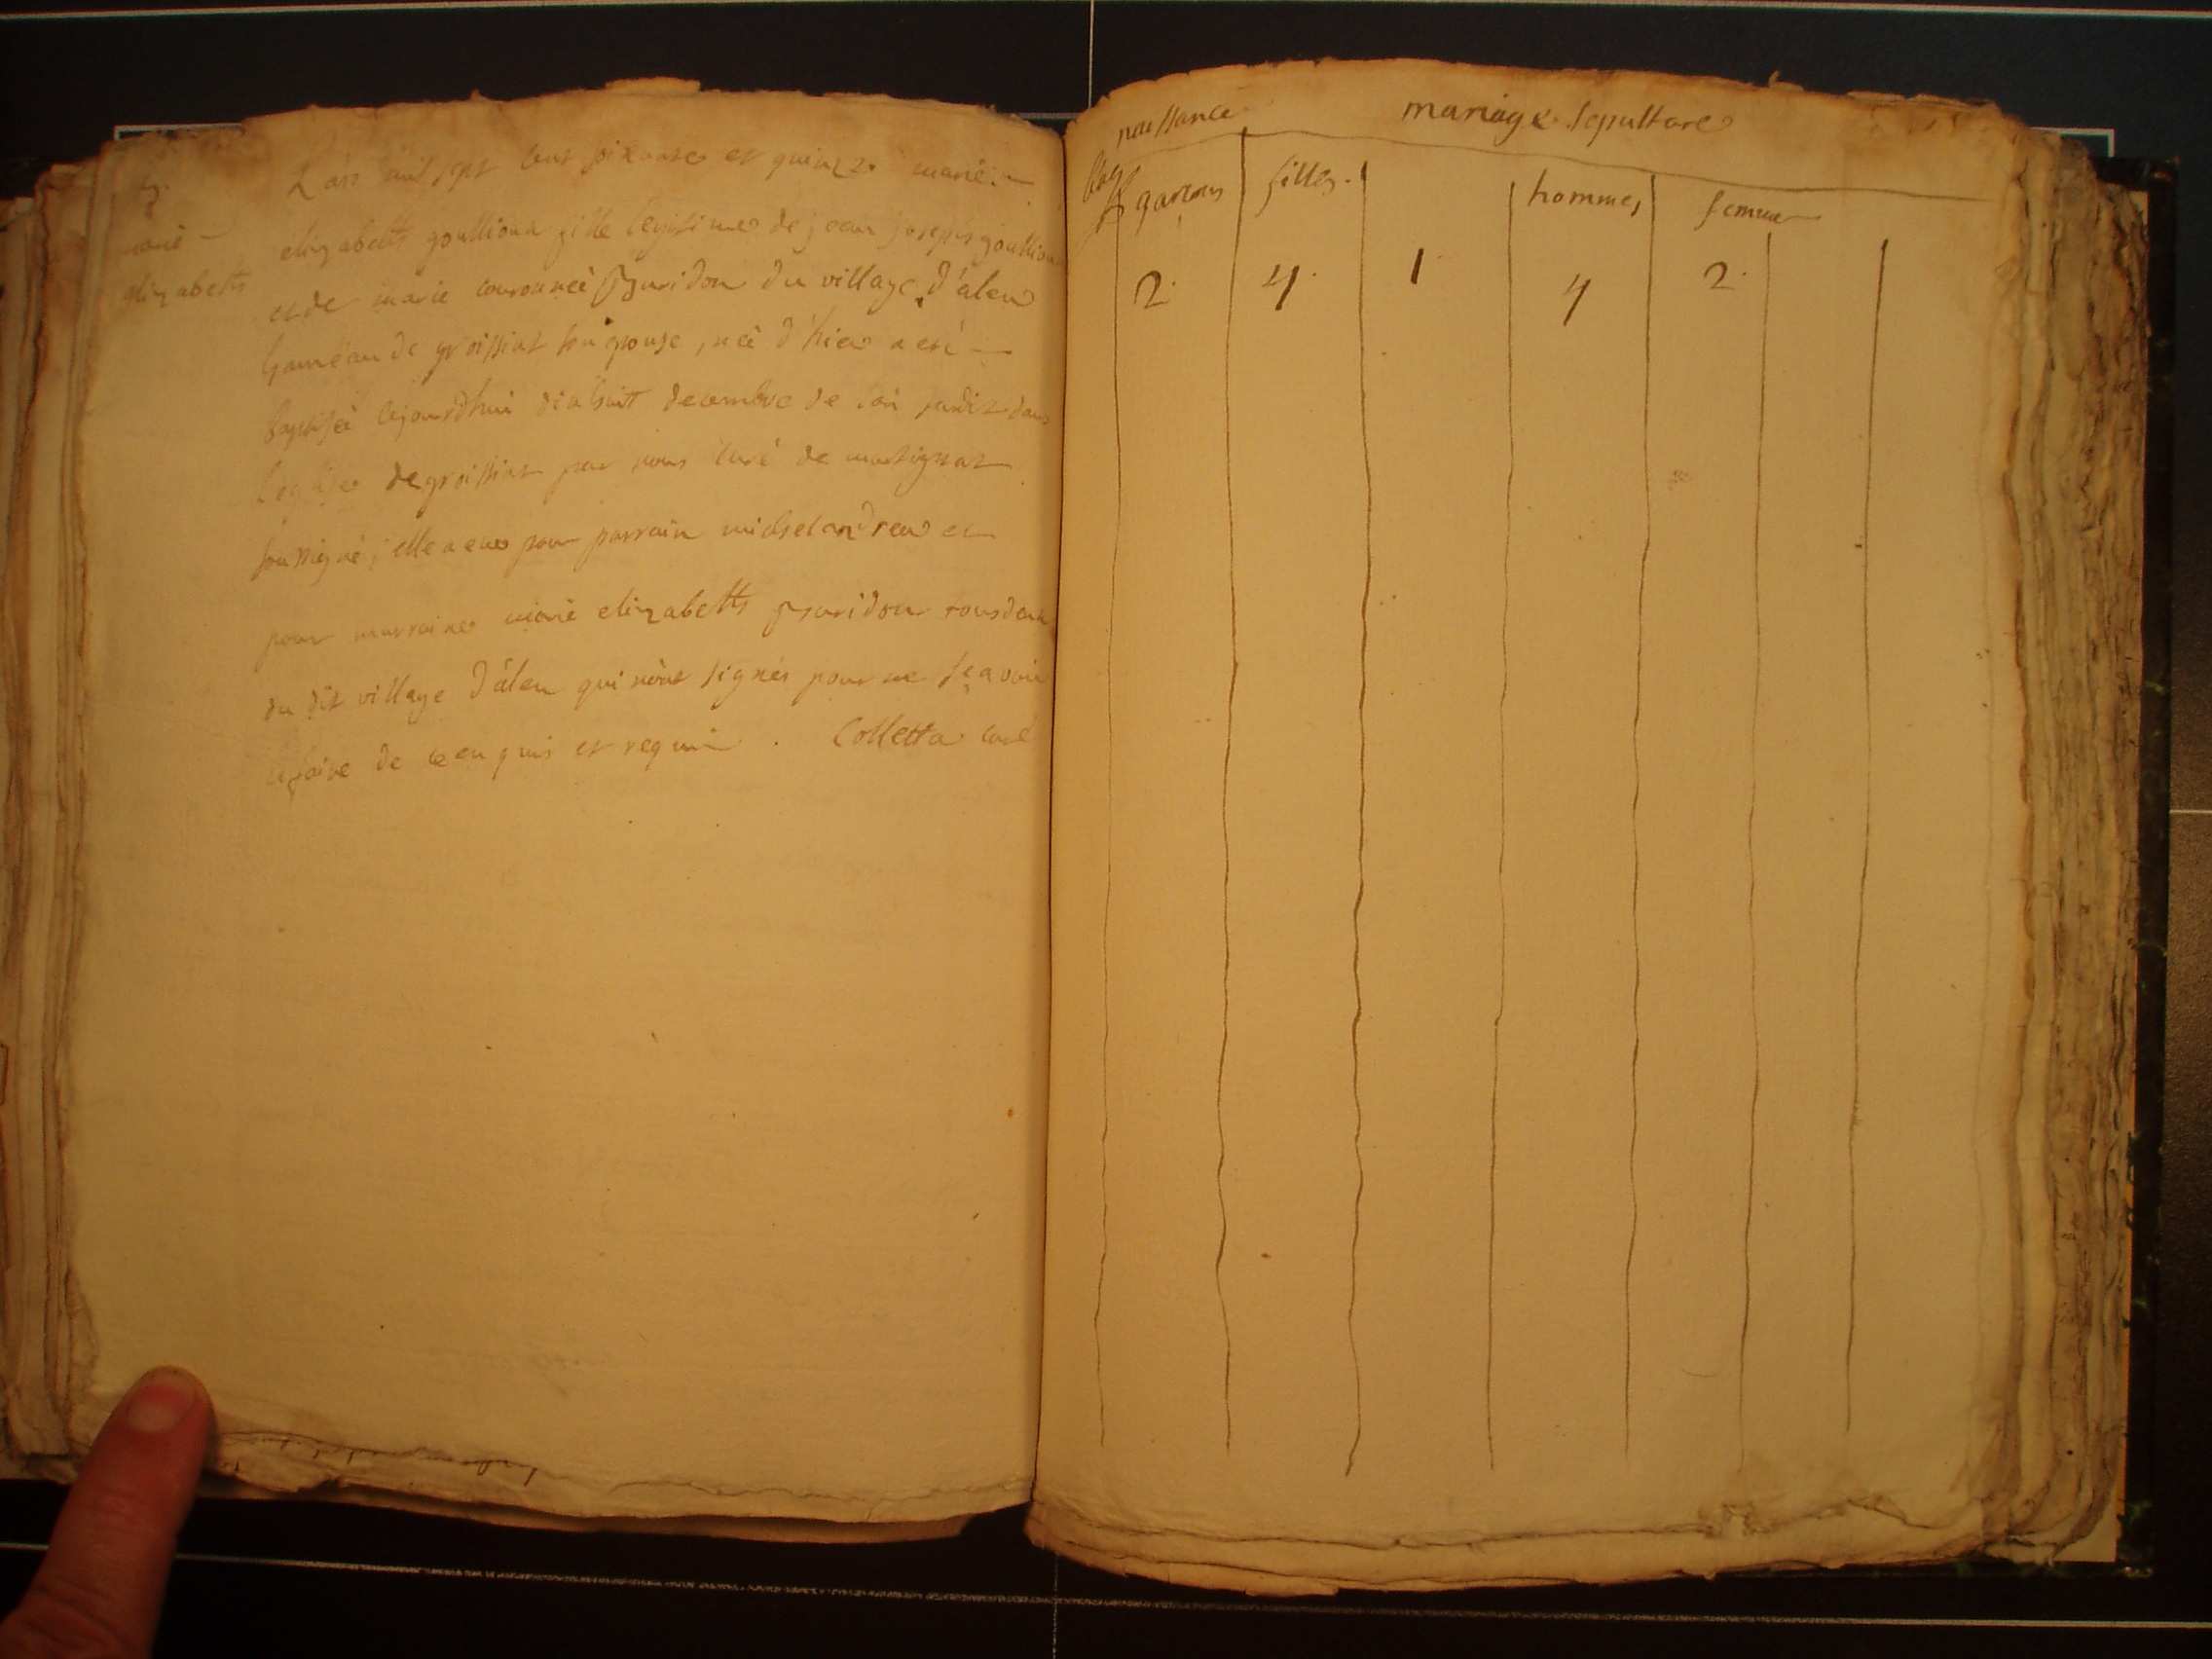 marie
elizabeth
L'an mil sept cent soixante et quinze marie
elizabeth goullioux fille legitime de jean joseph goullioux
et de marie couronneé Buridon du village d'alex
hameau de groissiat son epouse, neé d'hier a eté
baptiseé cejourdhui dixhuit decembre de l'an susdit dans
l'eglise de groissiat par nous curé de martignat
soussigné; elle a eu pour parrain michel andrea et
pour marraine marie elizabeth Buridon tous deux
du dit village d'alex qui n'ont signés pour ne sçavoir
le faire de ce enquis et requis. Colletta curé
naissance mariage sepulture
garçons filles. hommes femmes
2. 4. 1. 4 2.